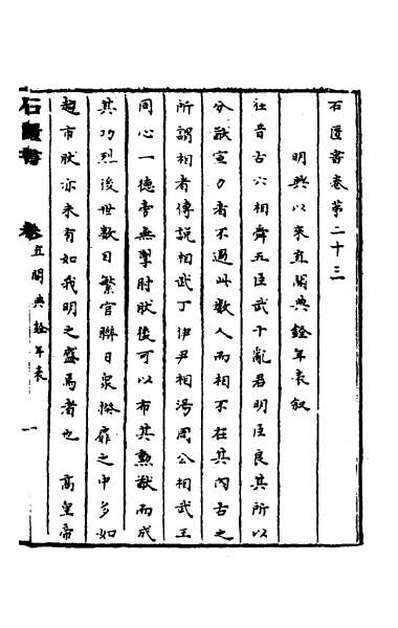 石匱書卷第二十三
明興以來直閣典銓年表叙
往昔古六相舜五臣武十亂君明臣良其所以
分猷宣力者不過此數人而相不在其內古之
所謂相者傅說相武丁伊尹相湯周公相武王
同心一德旁無掣肘肰後可以布其勲猷而成
其功烈後世數日繁官聯日衆揆席之中多如
趨市肰亦未有如我明之盛焉者也 高皇帝
石匱書 卷 直閣典銓年表 一